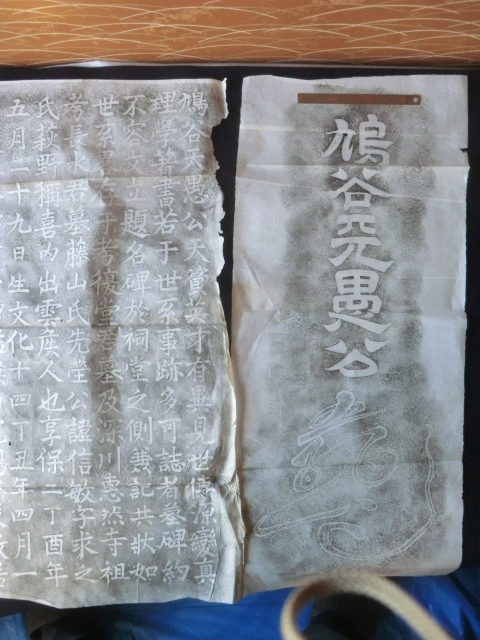 鳩谷天愚公
鳩谷天愚公天資英才有異見世傳源變真
理學著書若干世系事跡多可誌者墓碑約
不容文　題名碑於祠堂之側兼記其狀如
世系畧在于考優堂君墓及深川惠然寺祖
考長水君墓藤山氏先塋公諱信敏字求之
氏萩野稱喜内出雲侯人也享保二丁酉年
五月二十九日生文化十四丁丑年四月一